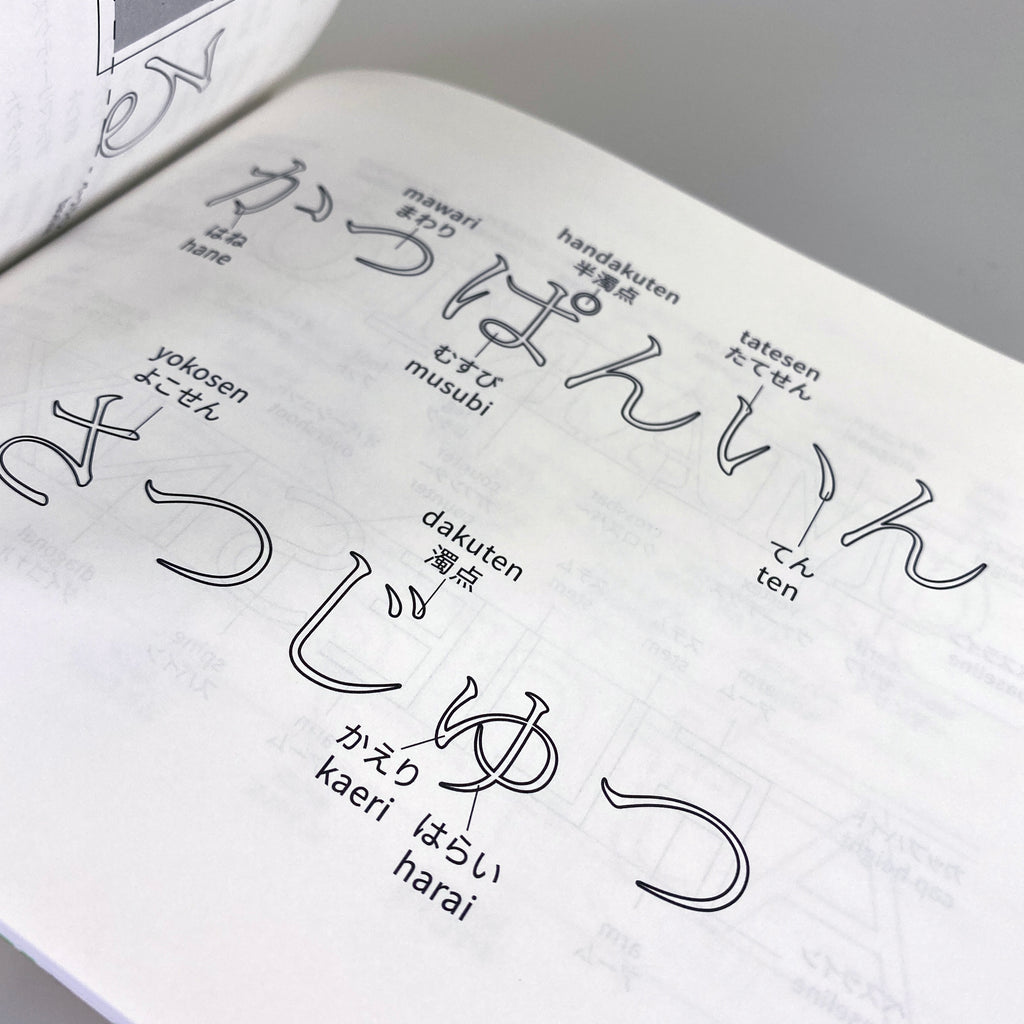 かっぱんいん
はね
hane
mawari
まわり
handakuten
半濁点
むすび
musubi
tatesen
たてせん
てん
ten
さつじゅつ
yokosen
よこせん
dakuten
濁点
かえり
kaeri
はらい
harai